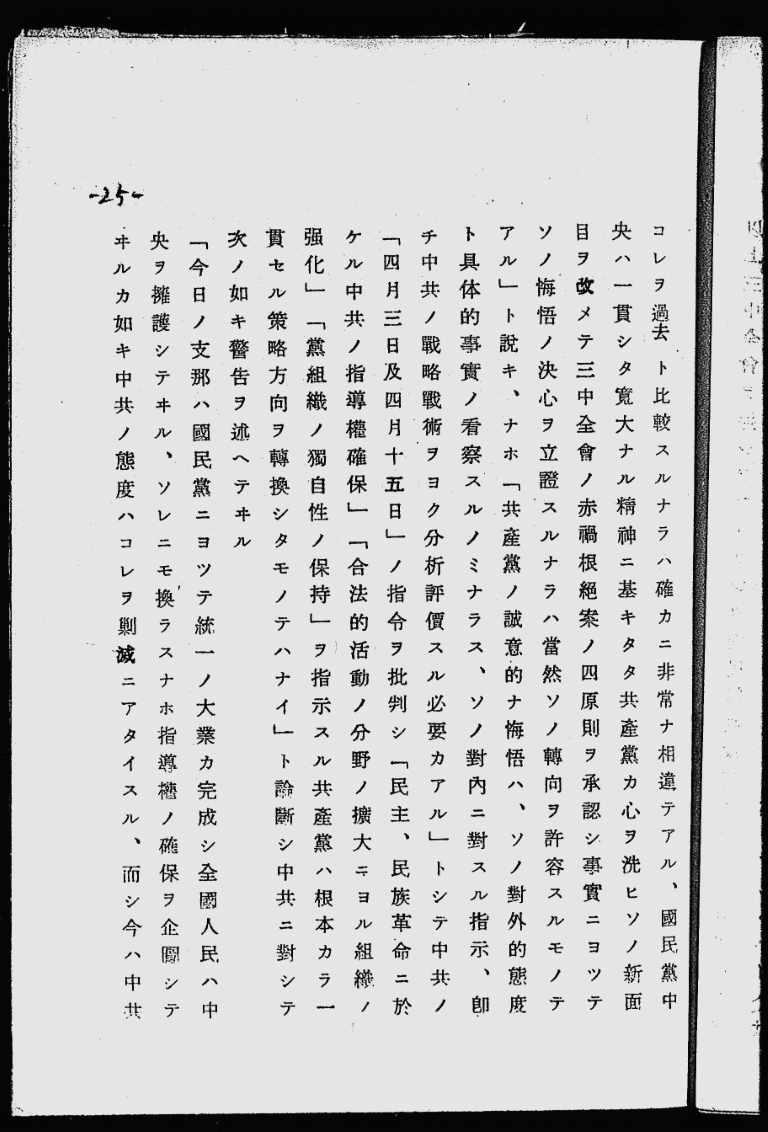 コレヲ過去ト比較スルナラハ確カニ非常ナ相違テアル、國民黨中
央ハ一貫シタ寛大ナル精神ニ基キタタ共産黨カ心ヲ洗ヒソノ新面
目ヲ改メテ三中全會ノ赤禍根絶案ノ四原則ヲ承認シ事實ニヨツテ
ソノ悔悟ノ決心ヲ立證スルナラハ當然ソノ轉向ヲ許容スルモノテ
アル」ト說キ、ナホ「共產黨ノ誠意的ナ悔悟ハ、ソノ對外的態度
ト具体的事實ノ看察スルノミナラス、ソノ對內ニ對スル指示、卽
チ中共ノ戰略戰術ヲヨク分析評價スル必要カアル」トシテ中共ノ
「四月三日及四月十五日」ノ指令ヲ批判シ「民主、民族革命ニ於
ケル中共ノ指導權確保」「合法的活動ノ分野ノ擴大ニヨル組織ノ
强化」「黨組織ノ獨自性ノ保持」ヲ指示スル共產黨ハ根本カラ一
貫セル策略方向ヲ轉換シタモノテハナイ」ト論斷シ中共ニ對シテ
次ノ如キ警告ヲ述ヘテヰル
「今日ノ支那ハ國民黨ニヨツテ統一ノ大業カ完成シ全國人民ハ中
央ヲ擁護シテヰル、ソレニモ換ラスナホ指導權ノ確保ヲ企圖シテ
ヰルカ如キ中共ノ態度ハコレヲ剿滅ニアタイスル、而シ今ハ中共
-25-